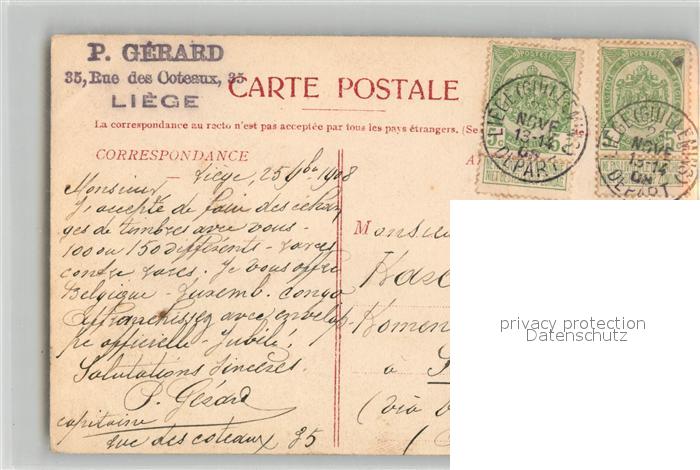 P. GÉRARD
35, Rue des Coteaux, 35
LIÈGE
CARTE POSTALE
La correspondance au recto n'est pas acceptée par tous les pays étrangers. (Se
CORRESPONDANCE
Liège, 25 9bre 1908
Monsieur
J'accepte de faire des échan
ges de timbres avec vous -
100 ou 150 différents - rares
contre rares. Je vous offre
Belgique - Luxemb. Congo
Affranchissez avec envelop-
pe officielle - Jubilé!
Salutations sincères.
P. Gérard
capitaine
rue des coteaux 35
POSTES
LIEGE (GUILLEMINS)
NOVE
13-14
08
DEPART
POSTES
LIEGE (GUILLEMINS)
NOVE
13-14
08
DEPART
Monsieu
Kase
Komen
à
(via
(
privacy protection
Datenschutz